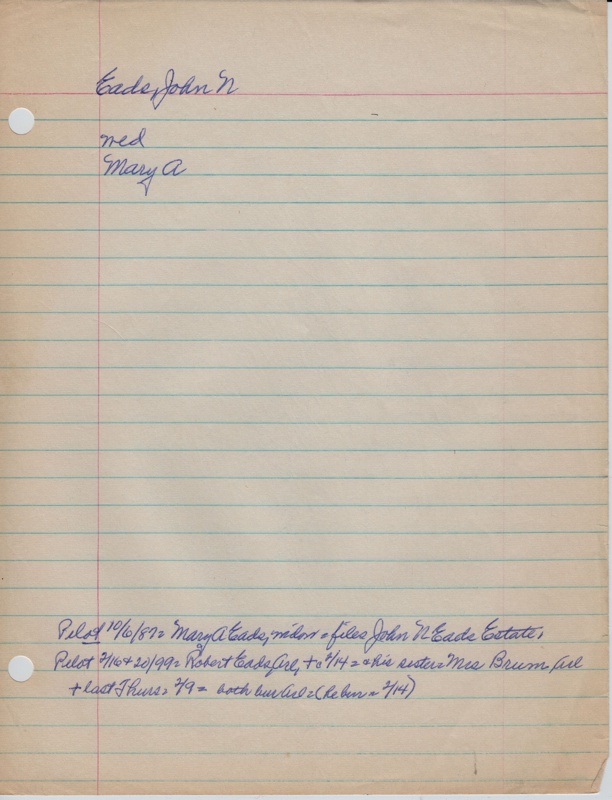 Eads, John N
med
Mary A
Pilot 10/6/87 = Mary A Eads, widow = files John N Eads Estate,
Pilot 2/16 + 20/99 = Robert Eads, Arl, + 2/14 = + his sister = Mrs Brum, Arl
+ last Thurs = 2/9 = both bur Arl = (he bur = 2/14)